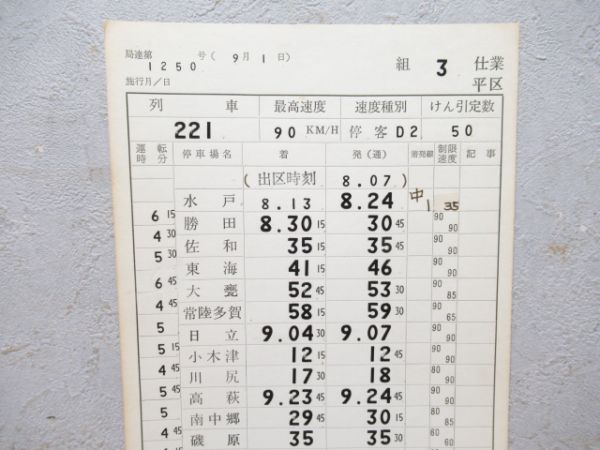 局達第 1250 号( 9月 1日)
施行月/日
組 3 仕業
平区
列 車 最高速度 速度種別 けん引定数
221 90 KM/H 停客D2 50
運転時分 停車場名 着 発(通) 着発線 制限速度 記事
(出区時刻 8.07)
水戸 8.13 8.24 中1 35
6 15 勝田 8.30 15 30 45 90 90
4 30 佐和 35 15 35 45 90 90
5 30 東海 41 15 46 90 90
6 45 大甕 52 45 53 30 90 85
4 45 常陸多賀 58 15 59 30 90 65
5 日立 9.04 30 9.07 90 90
5 15 小木津 12 15 12 45 90 90
4 45 川尻 17 30 18 90 90
5 45 高萩 9.23 45 9.24 45 90 85
5 南中郷 29 45 30 15 90 90
4 45 磯原 35 35 30 60 60